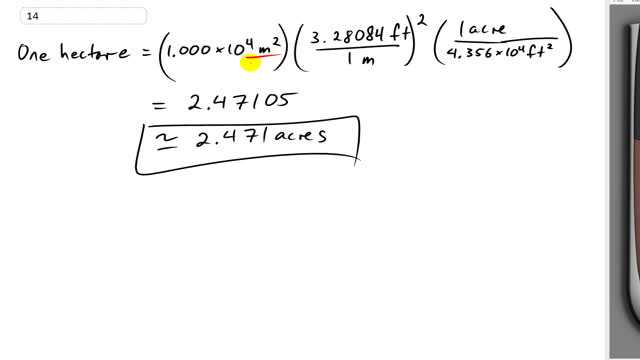 14
One hectare = (1.000 × 10⁴ m²) (3.28084 ft / 1 m)² (1 acre / 4.356 × 10⁴ ft²)
= 2.47105
≃ 2.471 acres